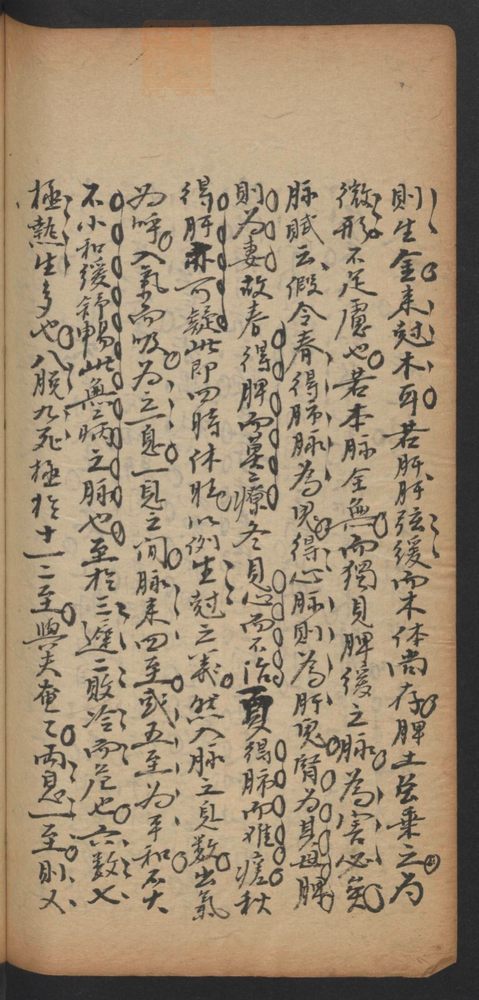 則生金来尅木耳若肝脉弦緩而木体尚存脾土兼乗之為
微形不足慮也若本脉全無而獨見脾緩之脉為害必矣
脉賦云假令春得肺脉為鬼得心脉則為肝児腎為其母脾
則為妻故春得脾而莫療冬見心而不治夏得肺而难瘥秋
得肝亦可疑此即四時休旺以例生尅之義然入脉之息数出氣
為呼入氣而吸為之息一息之间脉来四至或五至为平和不大
不小和缓舒畅此無病之脉也至於三遲二敗冷而危也六数七
極熱生多也八脱九死極於十一二至與夫奄乙両息一至則又